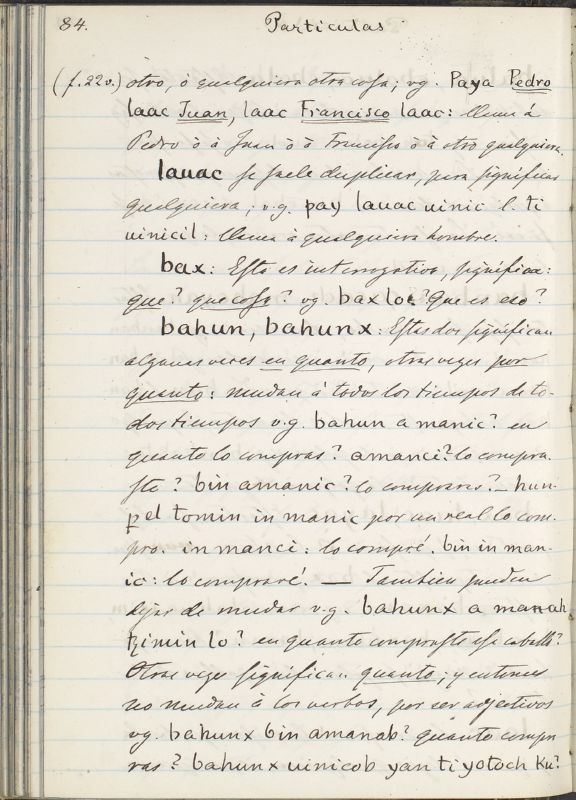 84. Particulas
(f. 22v.) otro, ò qualquiera otra cosa; vg. Paya Pedro
laac Juan, laac Francisco laac: llama á
Pedro ò à Juan ò à Francisco ò à otro qualquiera.
lauac se suele duplicar, para significar
qualquiera; v.g. pay lauac uinic il. ti
uinicil: llama à qualquiera hombre.
bax: Esta es interrogativo, significa:
que? que cosa? vg. bax lo? Que es eso?
bahun, bahunx: Estas dos significan
algunas veces en quanto, otras vezes por
quanto: mudan à todos los tiempos de to-
dos tiempos v.g. bahun a manic? en
quanto lo compras? a manci? lo compra-
ste? bin a manic? lo compraras? — hun-
ꝑel tomin in manic por un real lo com-
pro. in manci: lo compré. bin in man-
ic: lo compraré. — Tambien pueden
dejar de mudar v.g. bahunx a manah
tzimin lo? en quanto compraste ese caballo?
Otras vezes significan quanto; y entonces
no mudan à los verbos, por ser adjectivos
vg. bahunx bin amanab? quanto compra-
ras? bahunx uinicob yan ti yotoch ku?